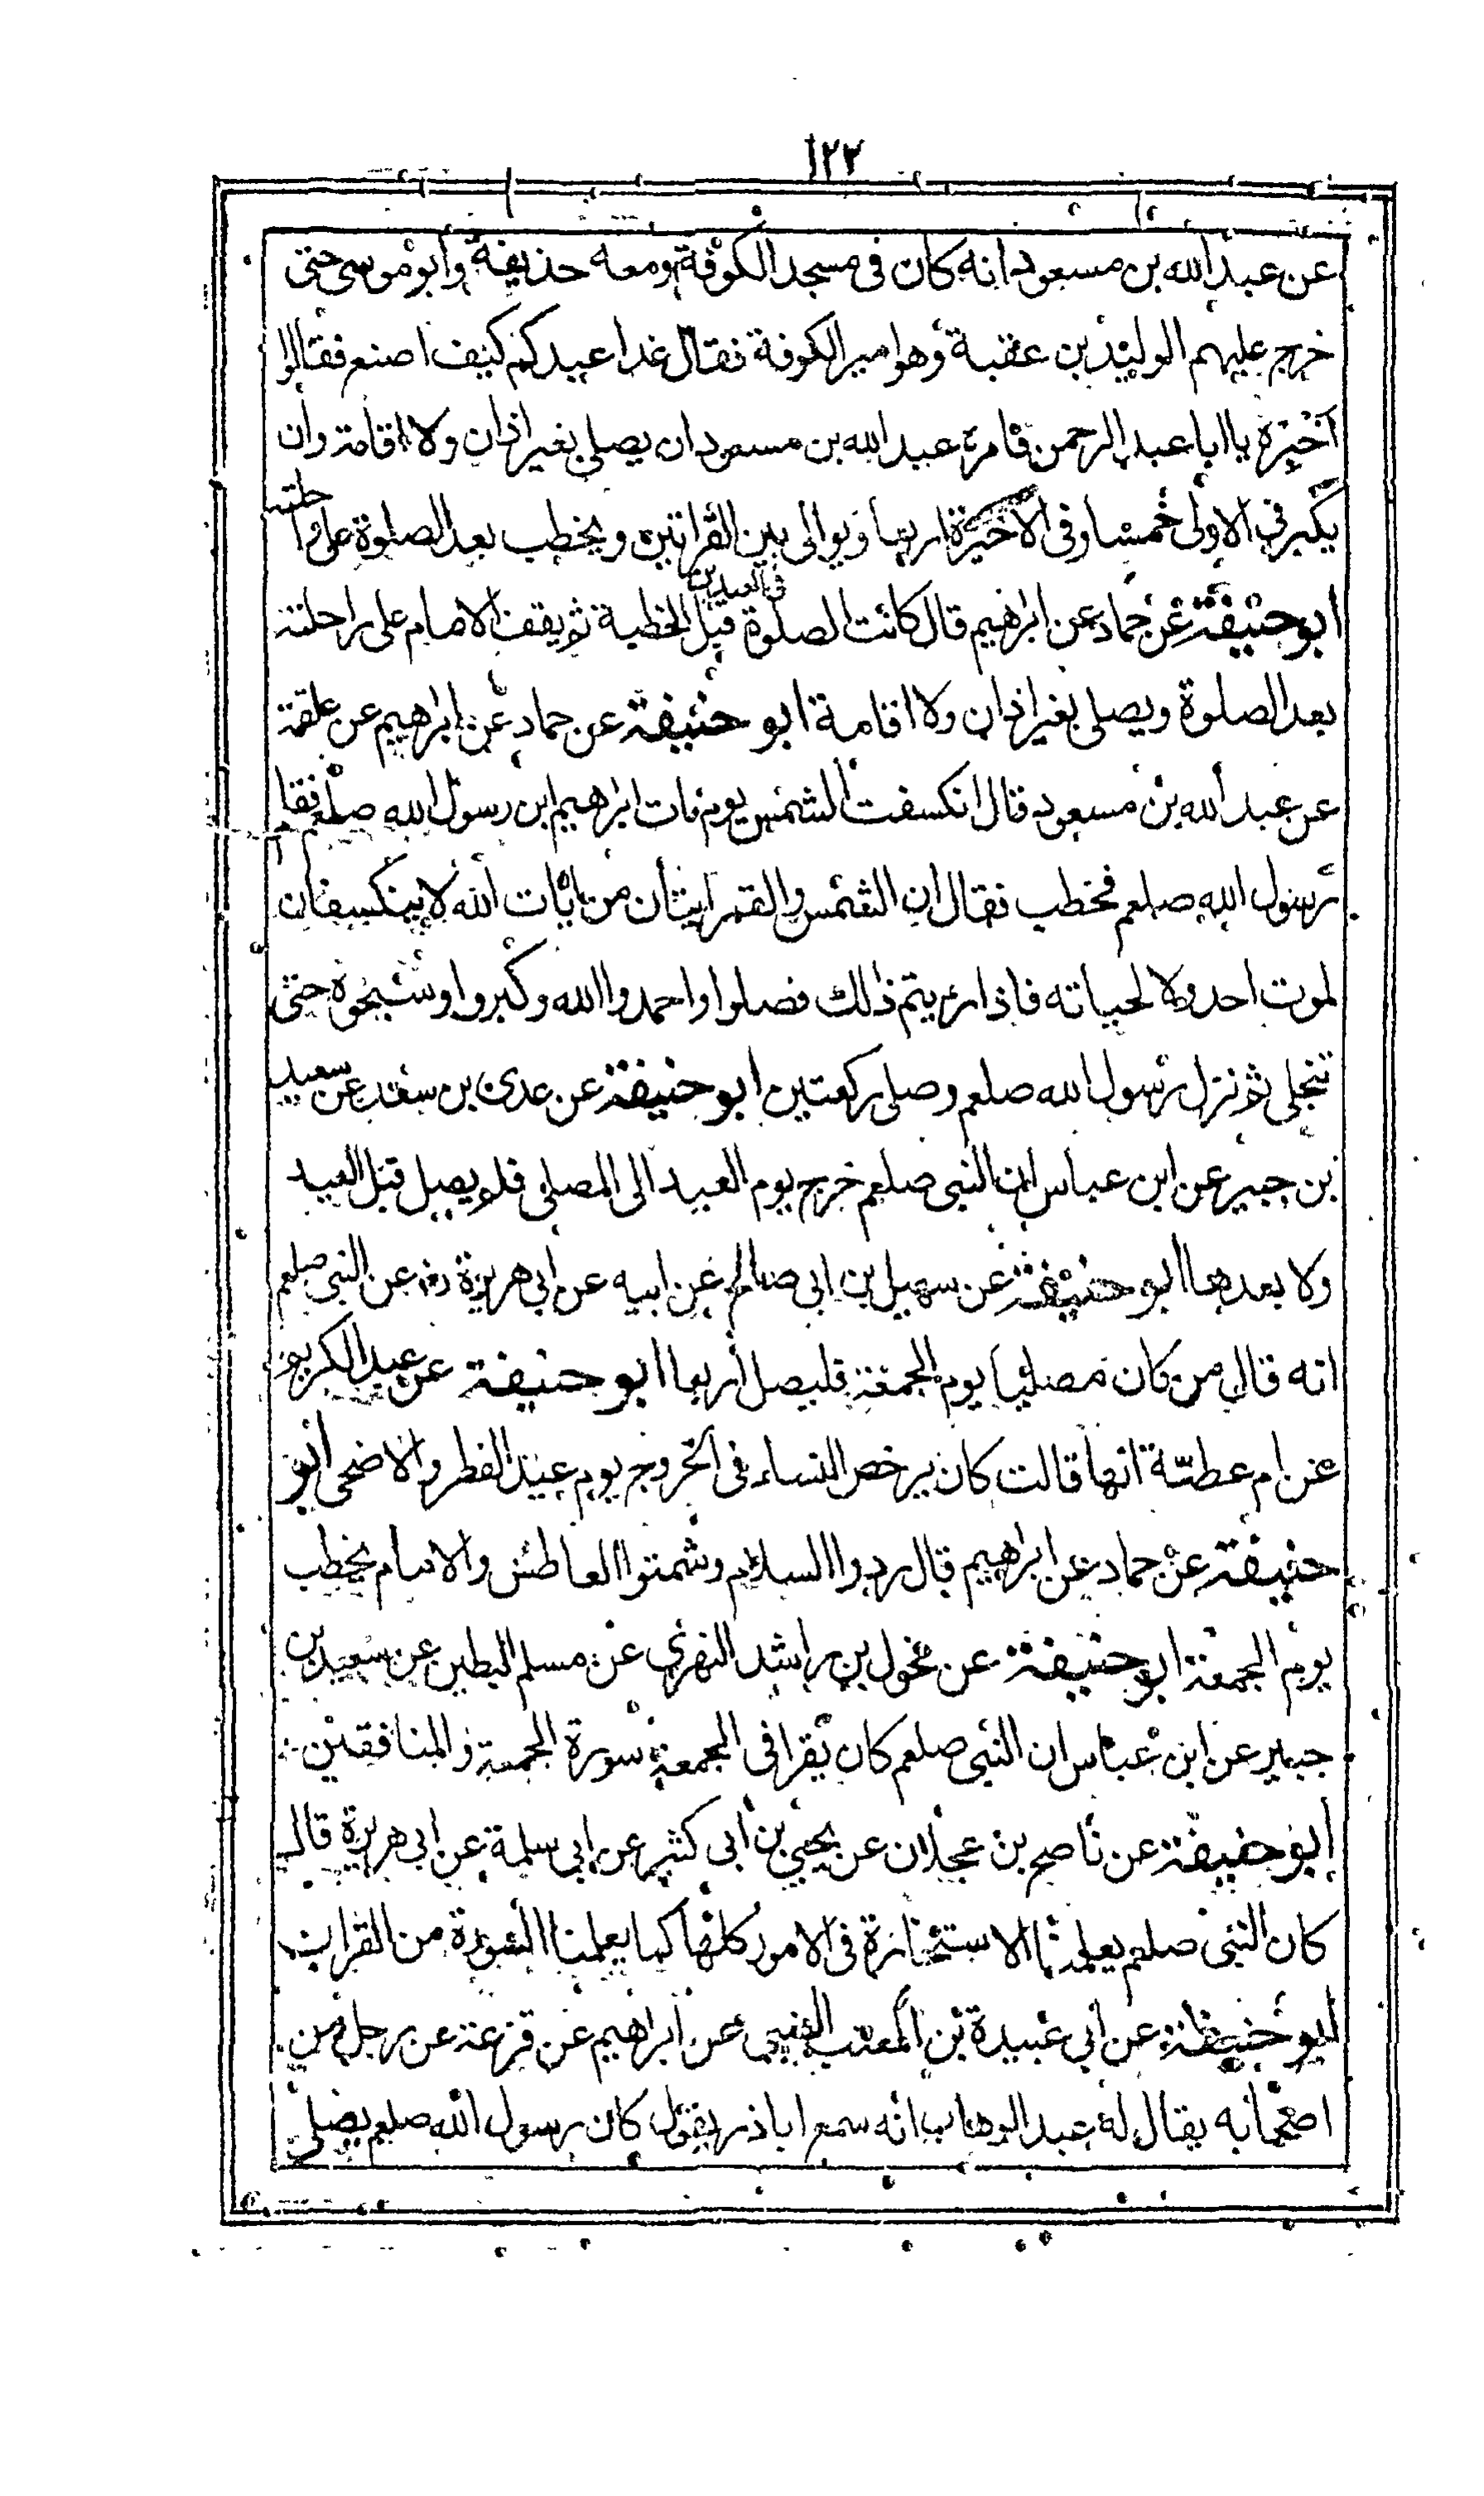 ١٢٢
عن عبد الله بن مسعود انه كان فى مسجد الكوفة ومعه حذيفة وابو موسى حتى
خرج عليهم الوليد بن عقبة وهو امير الكوفة فقال غدا عيدكم كيف اصنع فقالوا
اخبره يا ابا عبد الرحمن فامره عبد الله بن مسعود ان يصلى بغير اذان ولا اقامة وان
يكبر فى الاولى خمسا وفى الاخيرة اربعا ويوالى بين القراتين ويخطب بعد الصلوة على راحلته
ابو حنيفة عن حماد عن ابراهيم قال كانت الصلوة فى العيدين قبل الخطبة ثم يقف الامام على راحلته
بعد الصلوة ويصلى بغير اذان ولا اقامة ابو حنيفة عن حماد عن ابراهيم عن علقمة
عن عبد الله بن مسعود قال انكسفت الشمس يوم مات ابراهيم ابن رسول الله صلعم فقا
رسول الله صلعم فخطب فقال ان الشمس والقمر ايتان من ايات الله لا ينكسفان
لموت احد ولا لحياته فاذا رءيتم ذالك فصلوا واحمدوا الله وكبروا وسبحوه حتى
تنجلى ثم نزل رسول الله صلعم وصلى ركعتين ابو حنيفة عن عدى بن سعد عن سعيد
بن جبير عن ابن عباس ان النبى صلعم خرج يوم العيد الى المصلى فلم يصل قبل العيد
ولا بعدها ابو حنيفة عن سهيل بن ابى صالح عن ابيه عن ابى هريرة رض عن النبى صلعم
انه قال من كان مصليا يوم الجمعة فليصل اربعا ابو حنيفة عن عبد الكريم
عن ام عطية انها قالت كان يرخص النساء فى الخروج يوم عيد الفطر والاضحى ابو
حنيفة عن حماد عن ابراهيم قال ردوا السلام وشمتوا العاطش والامام يخطب
يوم الجمعة ابو حنيفة عن مخول بن راشد النهدى عن مسلم البطين عن سعيد بن
جبير عن ابن عباس ان النبى صلعم كان يقرا فى الجمعة سورة الجمعة والمنافقين
ابو حنيفة عن ناصح بن عجلان عن يحيى بن ابى كثير عن ابى سلمة عن ابى هريرة قال
كان النبى صلعم يعلمنا الاستخارة فى الامور كلها كما يعلمنا السورة من القران
ابو حنيفة عن ابى عبيدة بن المعتب الضبى عن ابراهيم عن قزعة عن رجل من
اصحابه يقال له عبد الوهاب انه سمع اباذر يقول كان رسول الله صلعم يصلى